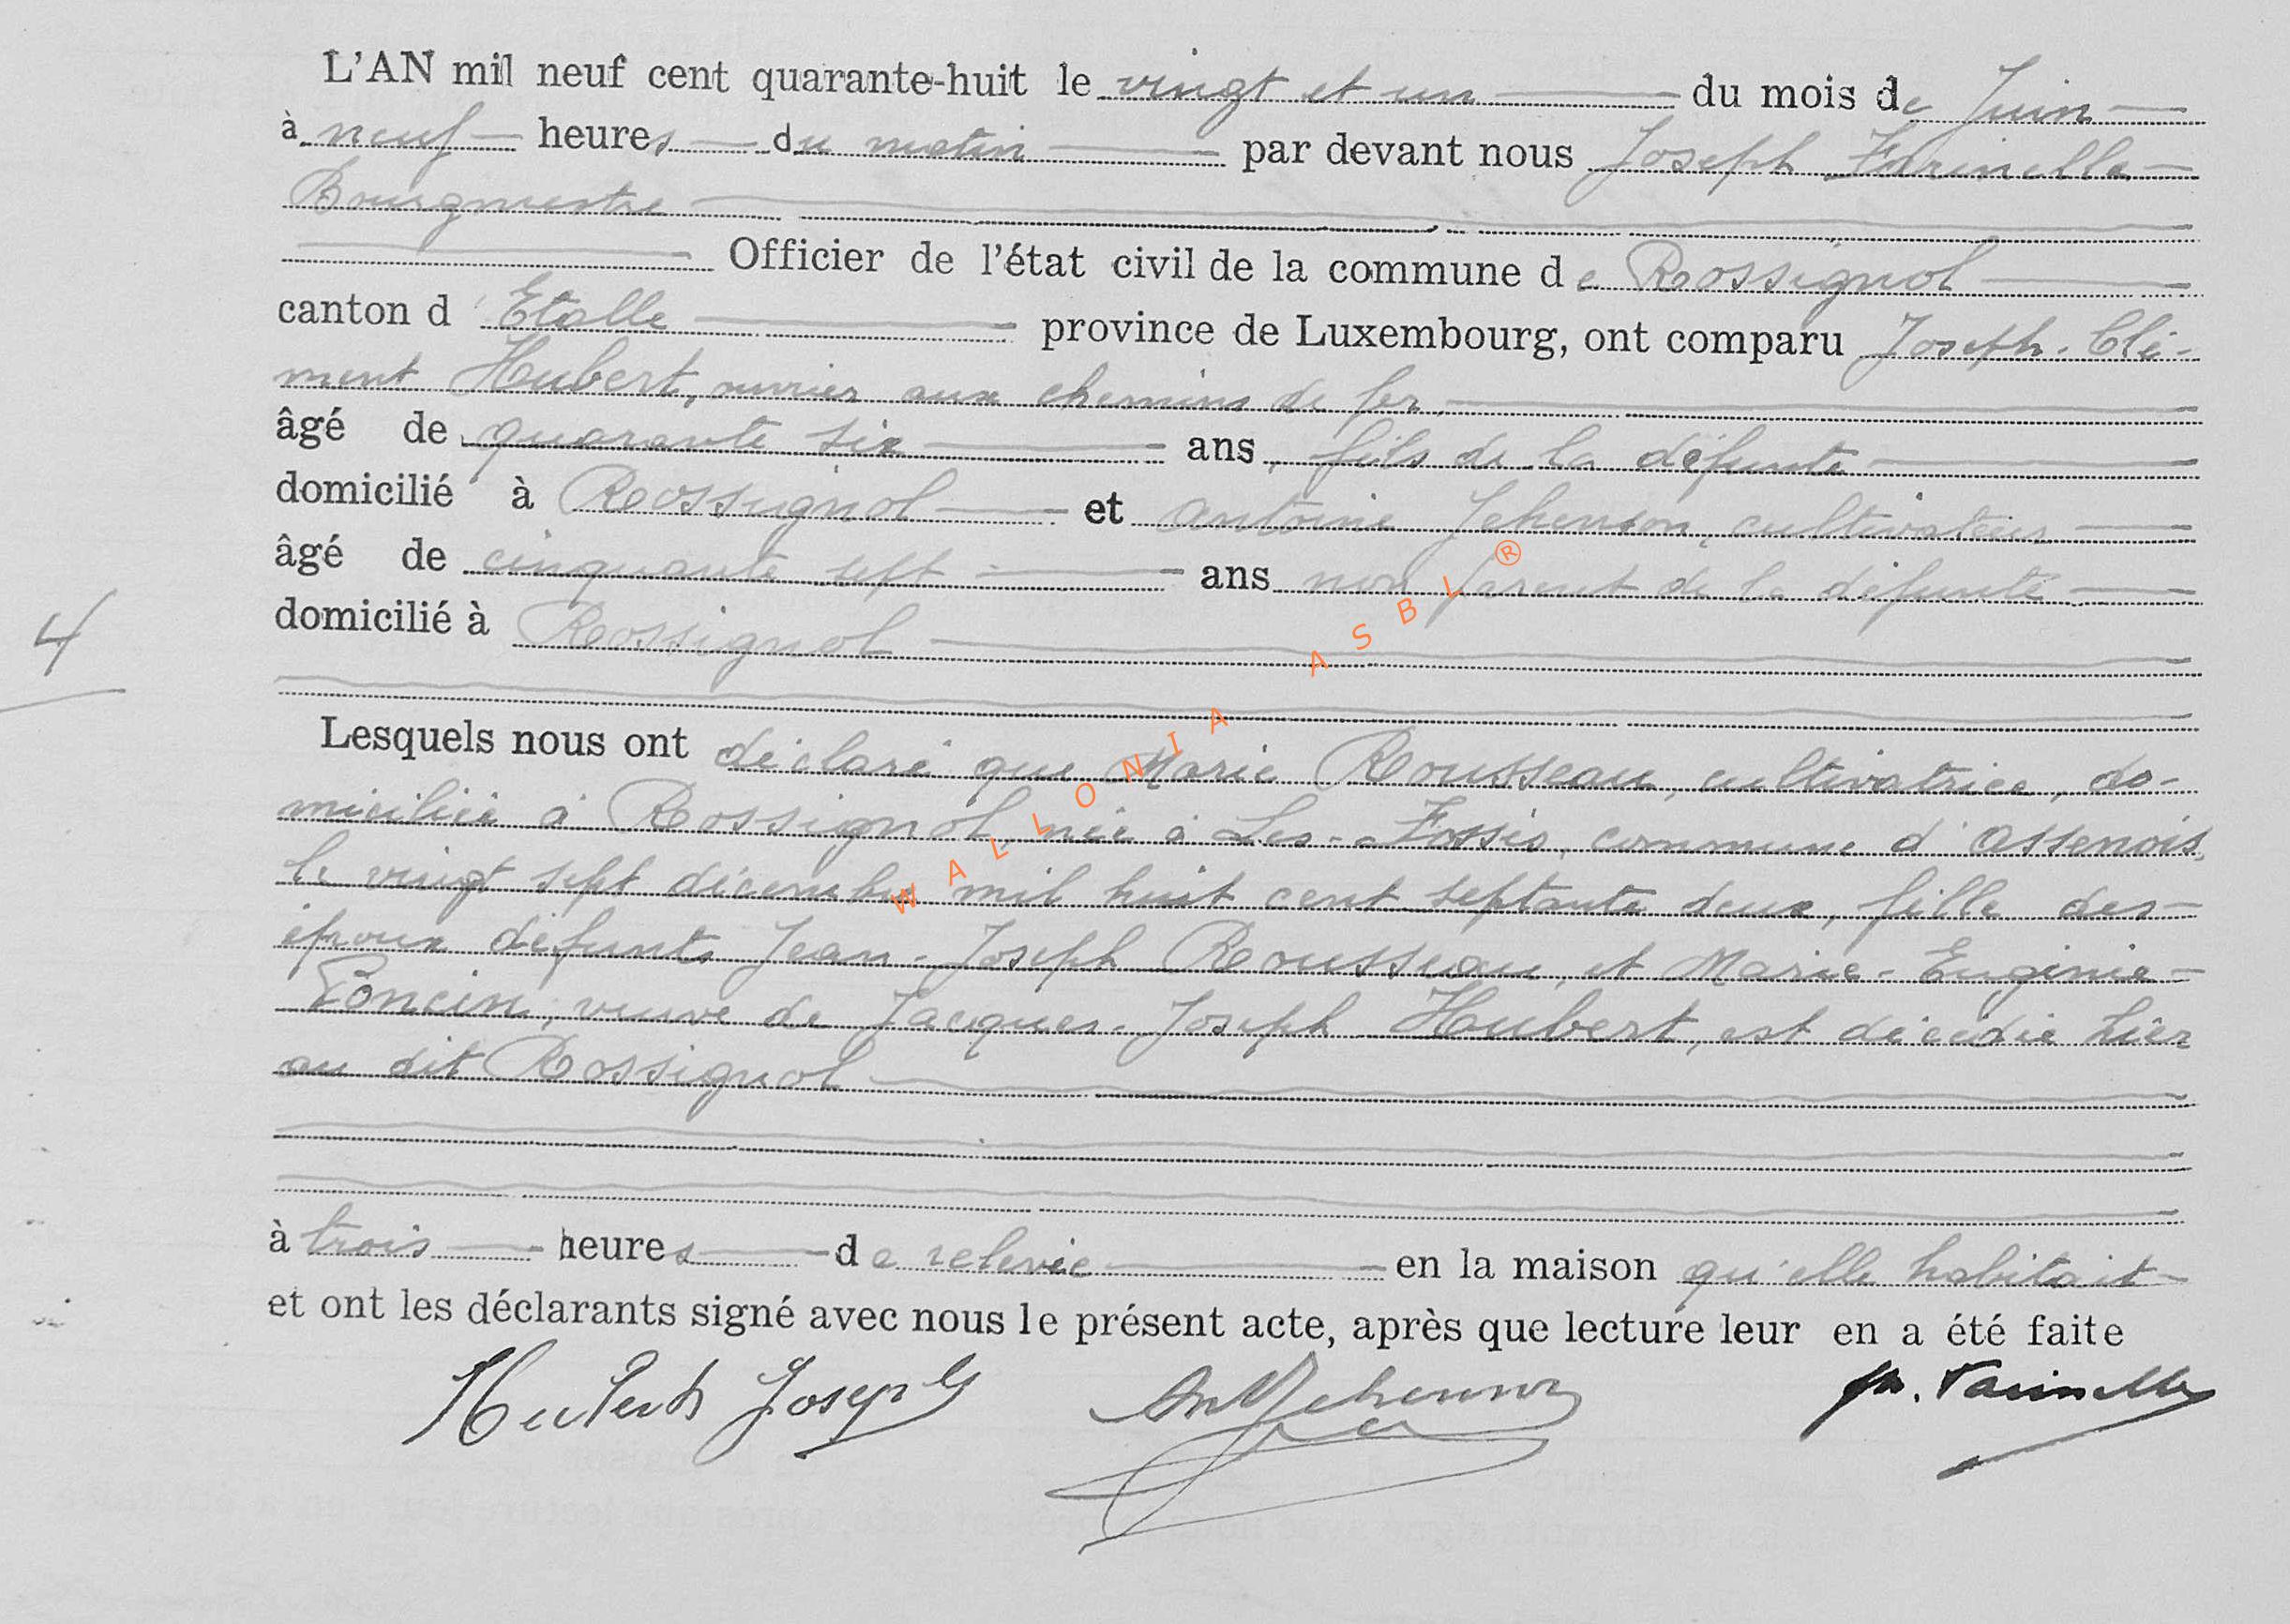 L'AN mil neuf cent quarante-huit le vingt et un du mois de Juin
à neuf heures du matin par devant nous Joseph Farinelle
Bourgmestre
Officier de l'état civil de la commune de Rossignol
canton d'Etalle province de Luxembourg, ont comparu Joseph-Clé-
ment Hubert, ouvrier aux chemins de fer,
âgé de quarante six ans, fils de la défunte
domicilié à Rossignol et Antoine Jehenson, cultivateur
âgé de cinquante sept ans non parent de la défunte
domicilié à Rossignol
4
Lesquels nous ont déclaré que Marie Rousseau, cultivatrice, do-
miciliée à Rossignol, née à Les-Fossés, commune d'Assenois,
le vingt sept décembre mil huit cent septante deux, fille des
époux défunts Jean-Joseph Rousseau, et Marie-Eugénie
Poncin, veuve de Jacques-Joseph Hubert, est décédée hier
au dit Rossignol
à trois heures de relevée en la maison qu'elle habitait
et ont les déclarants signé avec nous le présent acte, après que lecture leur en a été faite
Hubert Joseph Ant Jehenson Jh. Farinelle
WALLONIA ASBL ®